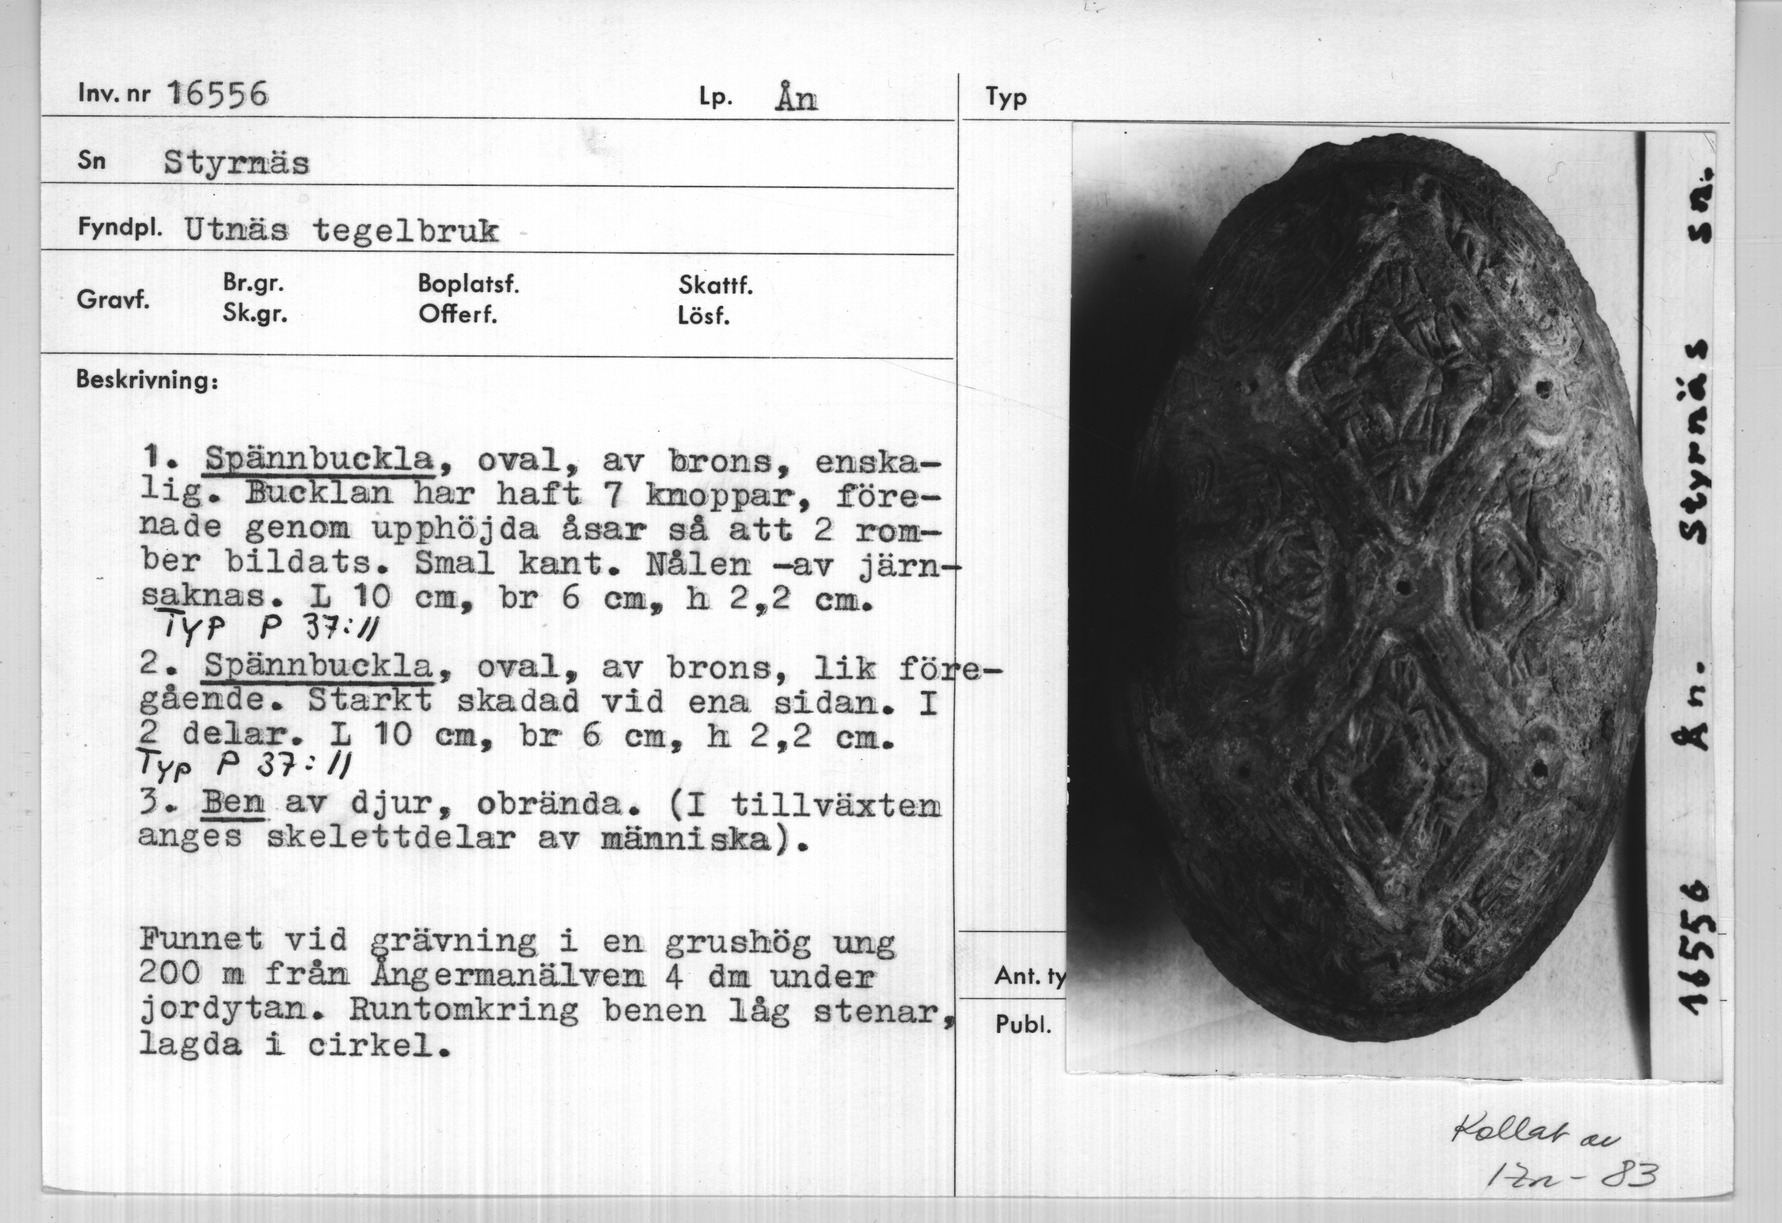 Inv. nr 16556 Lp. Ån Typ
Sn Styrnäs
Fyndpl. Utnäs tegelbruk
Gravf. Br.gr. Boplatsf. Skattf.
Sk.gr. Offerf. Lösf.
Beskrivning:
1. Spännbuckla, oval, av brons, enska-
lig. Bucklan har haft 7 knoppar, före-
nade genom upphöjda åsar så att 2 rom-
ber bildats. Smal kant. Nålen -av järn-
saknas. L 10 cm, br 6 cm, h 2,2 cm.
Typ P 37:11
2. Spännbuckla, oval, av brons, lik före-
gående. Starkt skadad vid ena sidan. I
2 delar. L 10 cm, br 6 cm, h 2,2 cm.
Typ P 37:11
3. Ben av djur, obrända. (I tillväxten
anges skelettdelar av människa).
Funnet vid grävning i en grushög ung
200 m från Ångermanälven 4 dm under
jordytan. Runtomkring benen låg stenar,
lagda i cirkel.
Ant. ty
Publ.
16556 Ån. Styrnäs sn.
Kollat av
-83